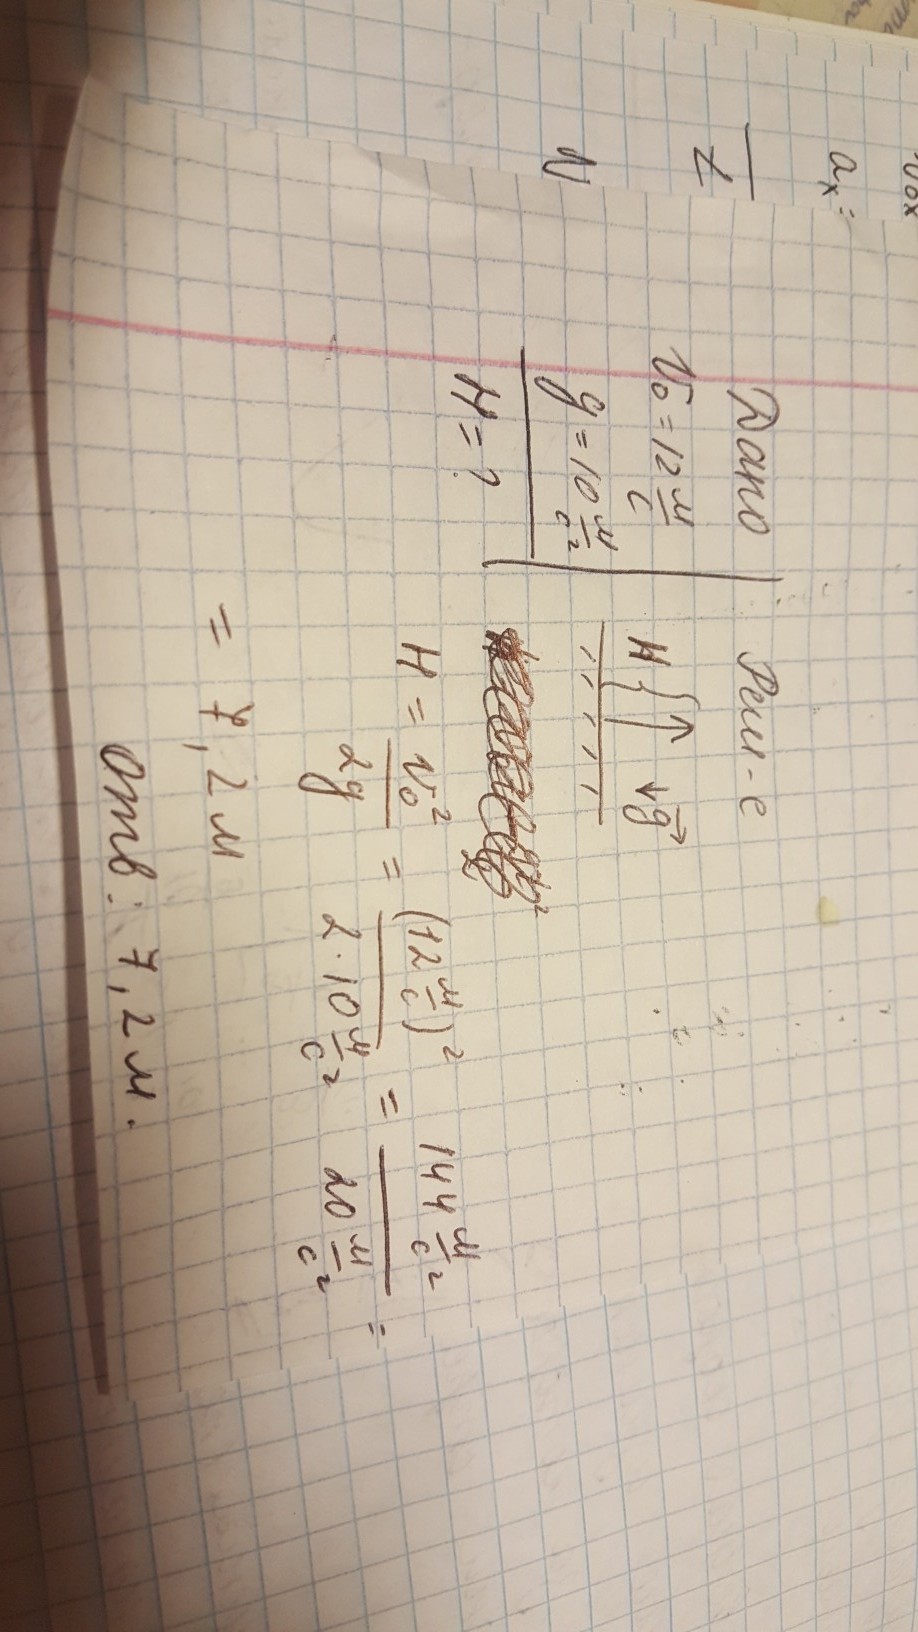 Дано
Реш-е
v₀ = 12 м/с
g = 10 м/с²
H = ?
H
g
H = v₀²/2g = (12 м/с)²/2·10 м/с² = 144 м/с²/20 м/с² =
= 7,2 м
отв: 7,2 м.
aₓ =